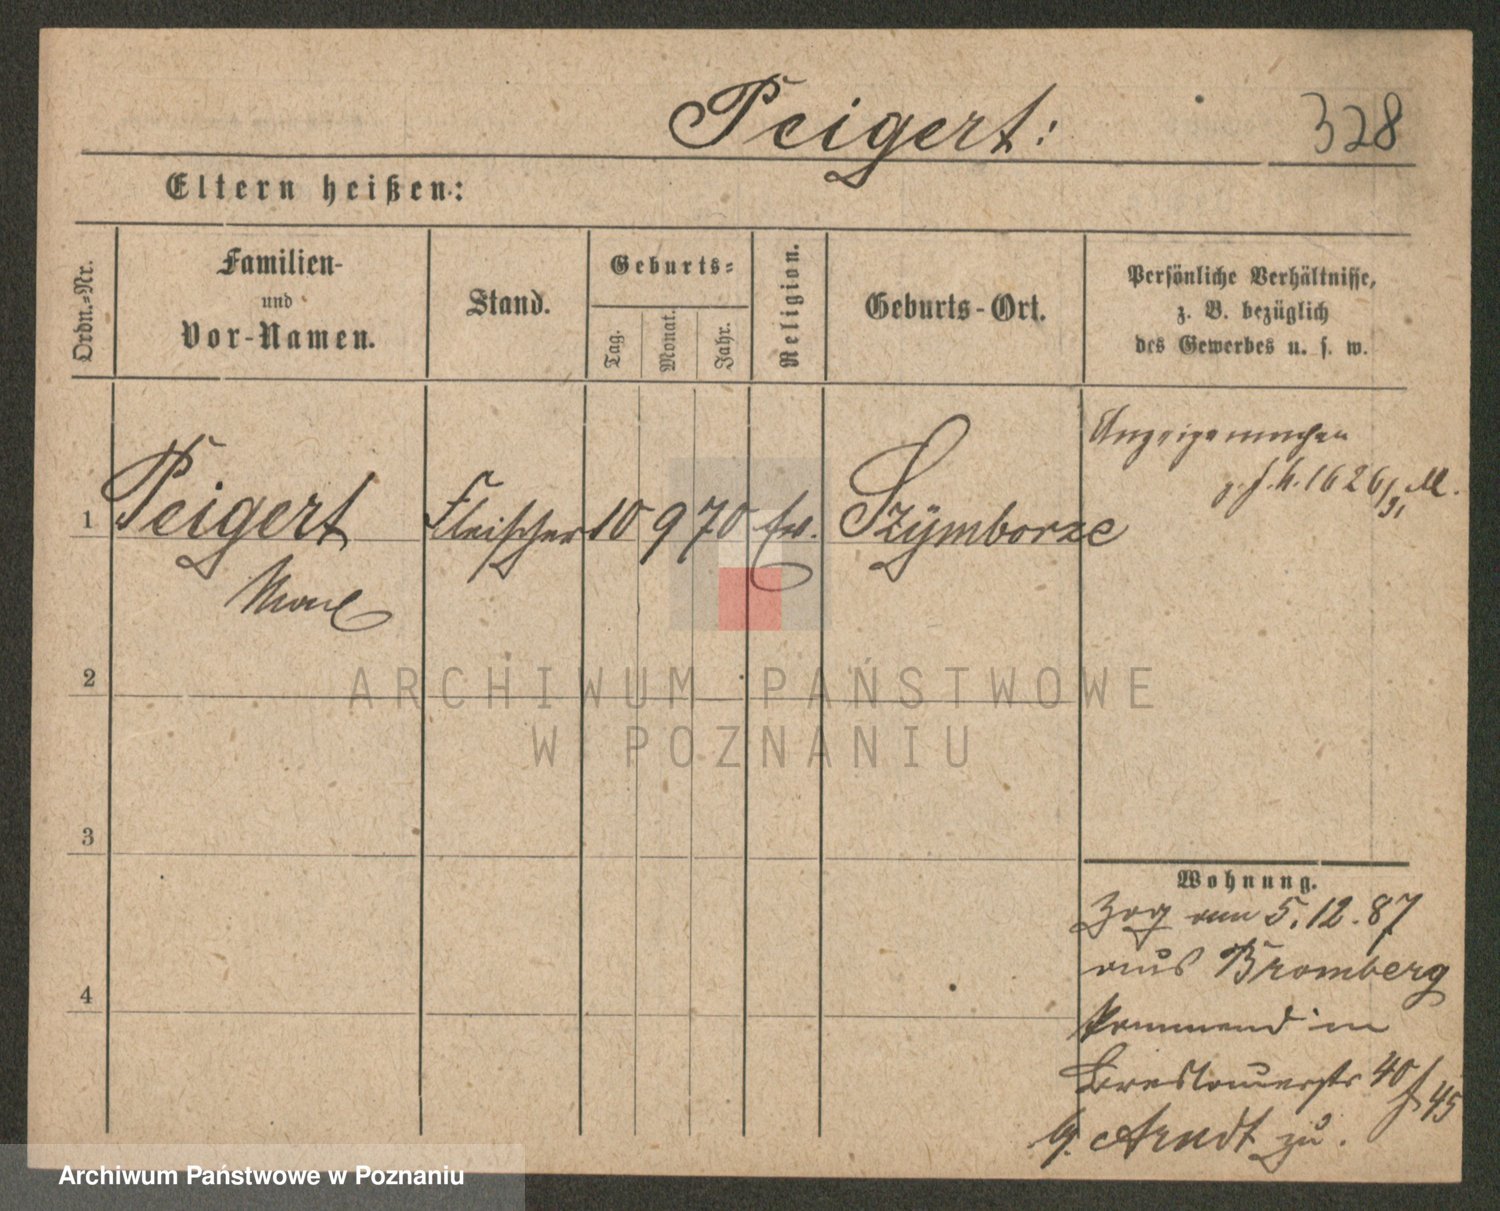 Peigert: 328
Eltern heißen:
Ordn.-Nr.
Familien-
und
Vor-Namen.
Stand.
Geburts-
Tag.
Monat.
Jahr.
Religion.
Geburts-Ort.
Persönliche Verhältnisse,
z. B. bezüglich
des Gewerbes u. s. w.
1 Peigert Fleischer 10 9 70 ev. Szÿmborze
Max
2
3
4
1626
Wohnung.
Zog am 5.12.87
aus Bromberg
kommend in
Breslauerstr 40
45
b. Arndt zu.
ARCHIWUM PAŃSTWOWE
W POZNANIU
Archiwum Państwowe w Poznaniu